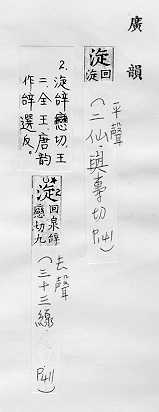 廣韻
淀 回淀
平聲
(二仙・與專切
P.141
2.淀辝戀切、王
二、全王、唐韵
作辝選反。
淀 回泉辝戀切九
去聲
(三十三線、
P.411